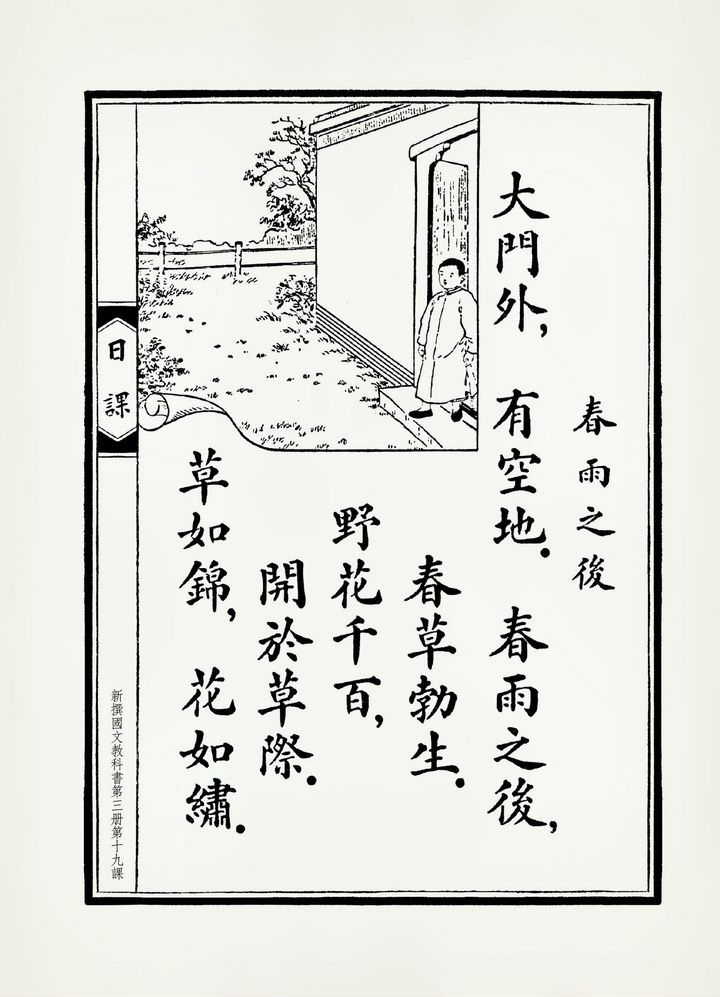 春雨之後
大門外，有空地．春雨之後，
春草勃生．
野花千百，
開於草際．
草如錦，花如繡．
日課
新撰國文教科書第三册第十九課